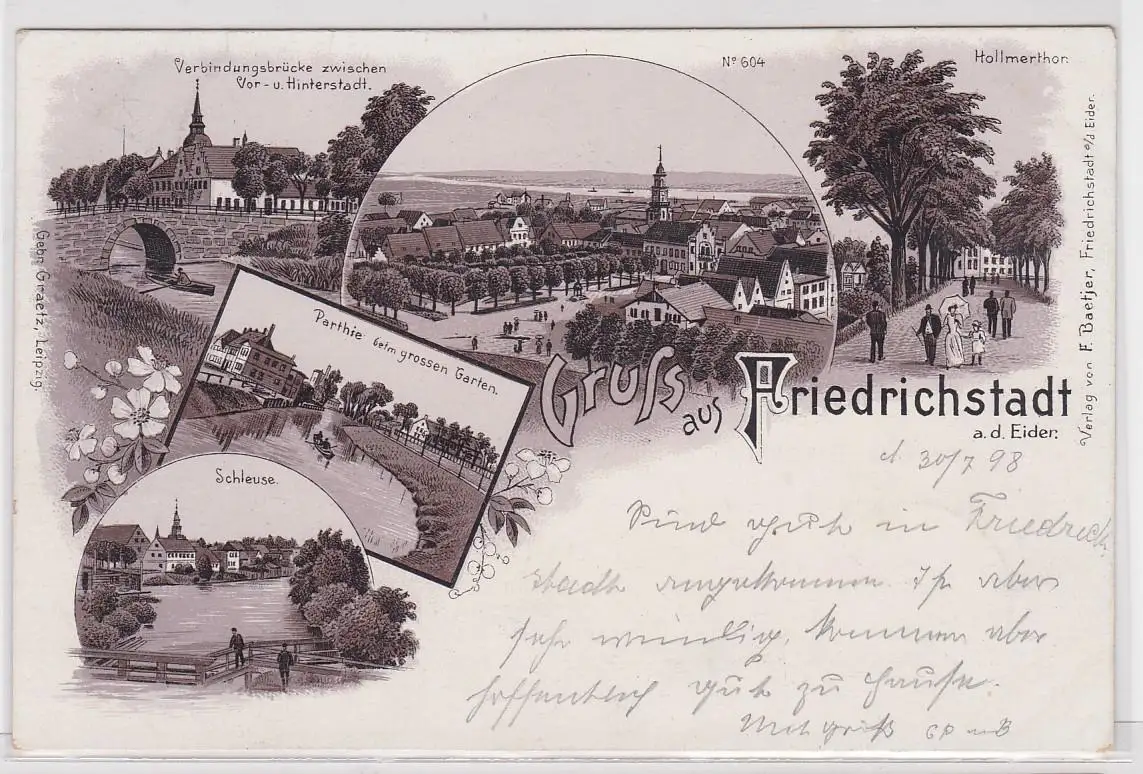 Verbindungsbrücke zwischen
Vor- u. Hinterstadt.
Nº 604
Hollmerthor.
Parthie beim grossen Garten.
Schleuse.
Gruſs aus Friedrichstadt
a. d. Eider.
Gebr. Graetz, Leipzig.
Verlag von F. Baetjer, Friedrichstadt a/d Eider.
d. 30/7 98
Sind gut in Friedrich
stadt angekommen. Ist aber
sehr windig, kommen aber
hoffentlich gut zu Hause.
Mit Gruß